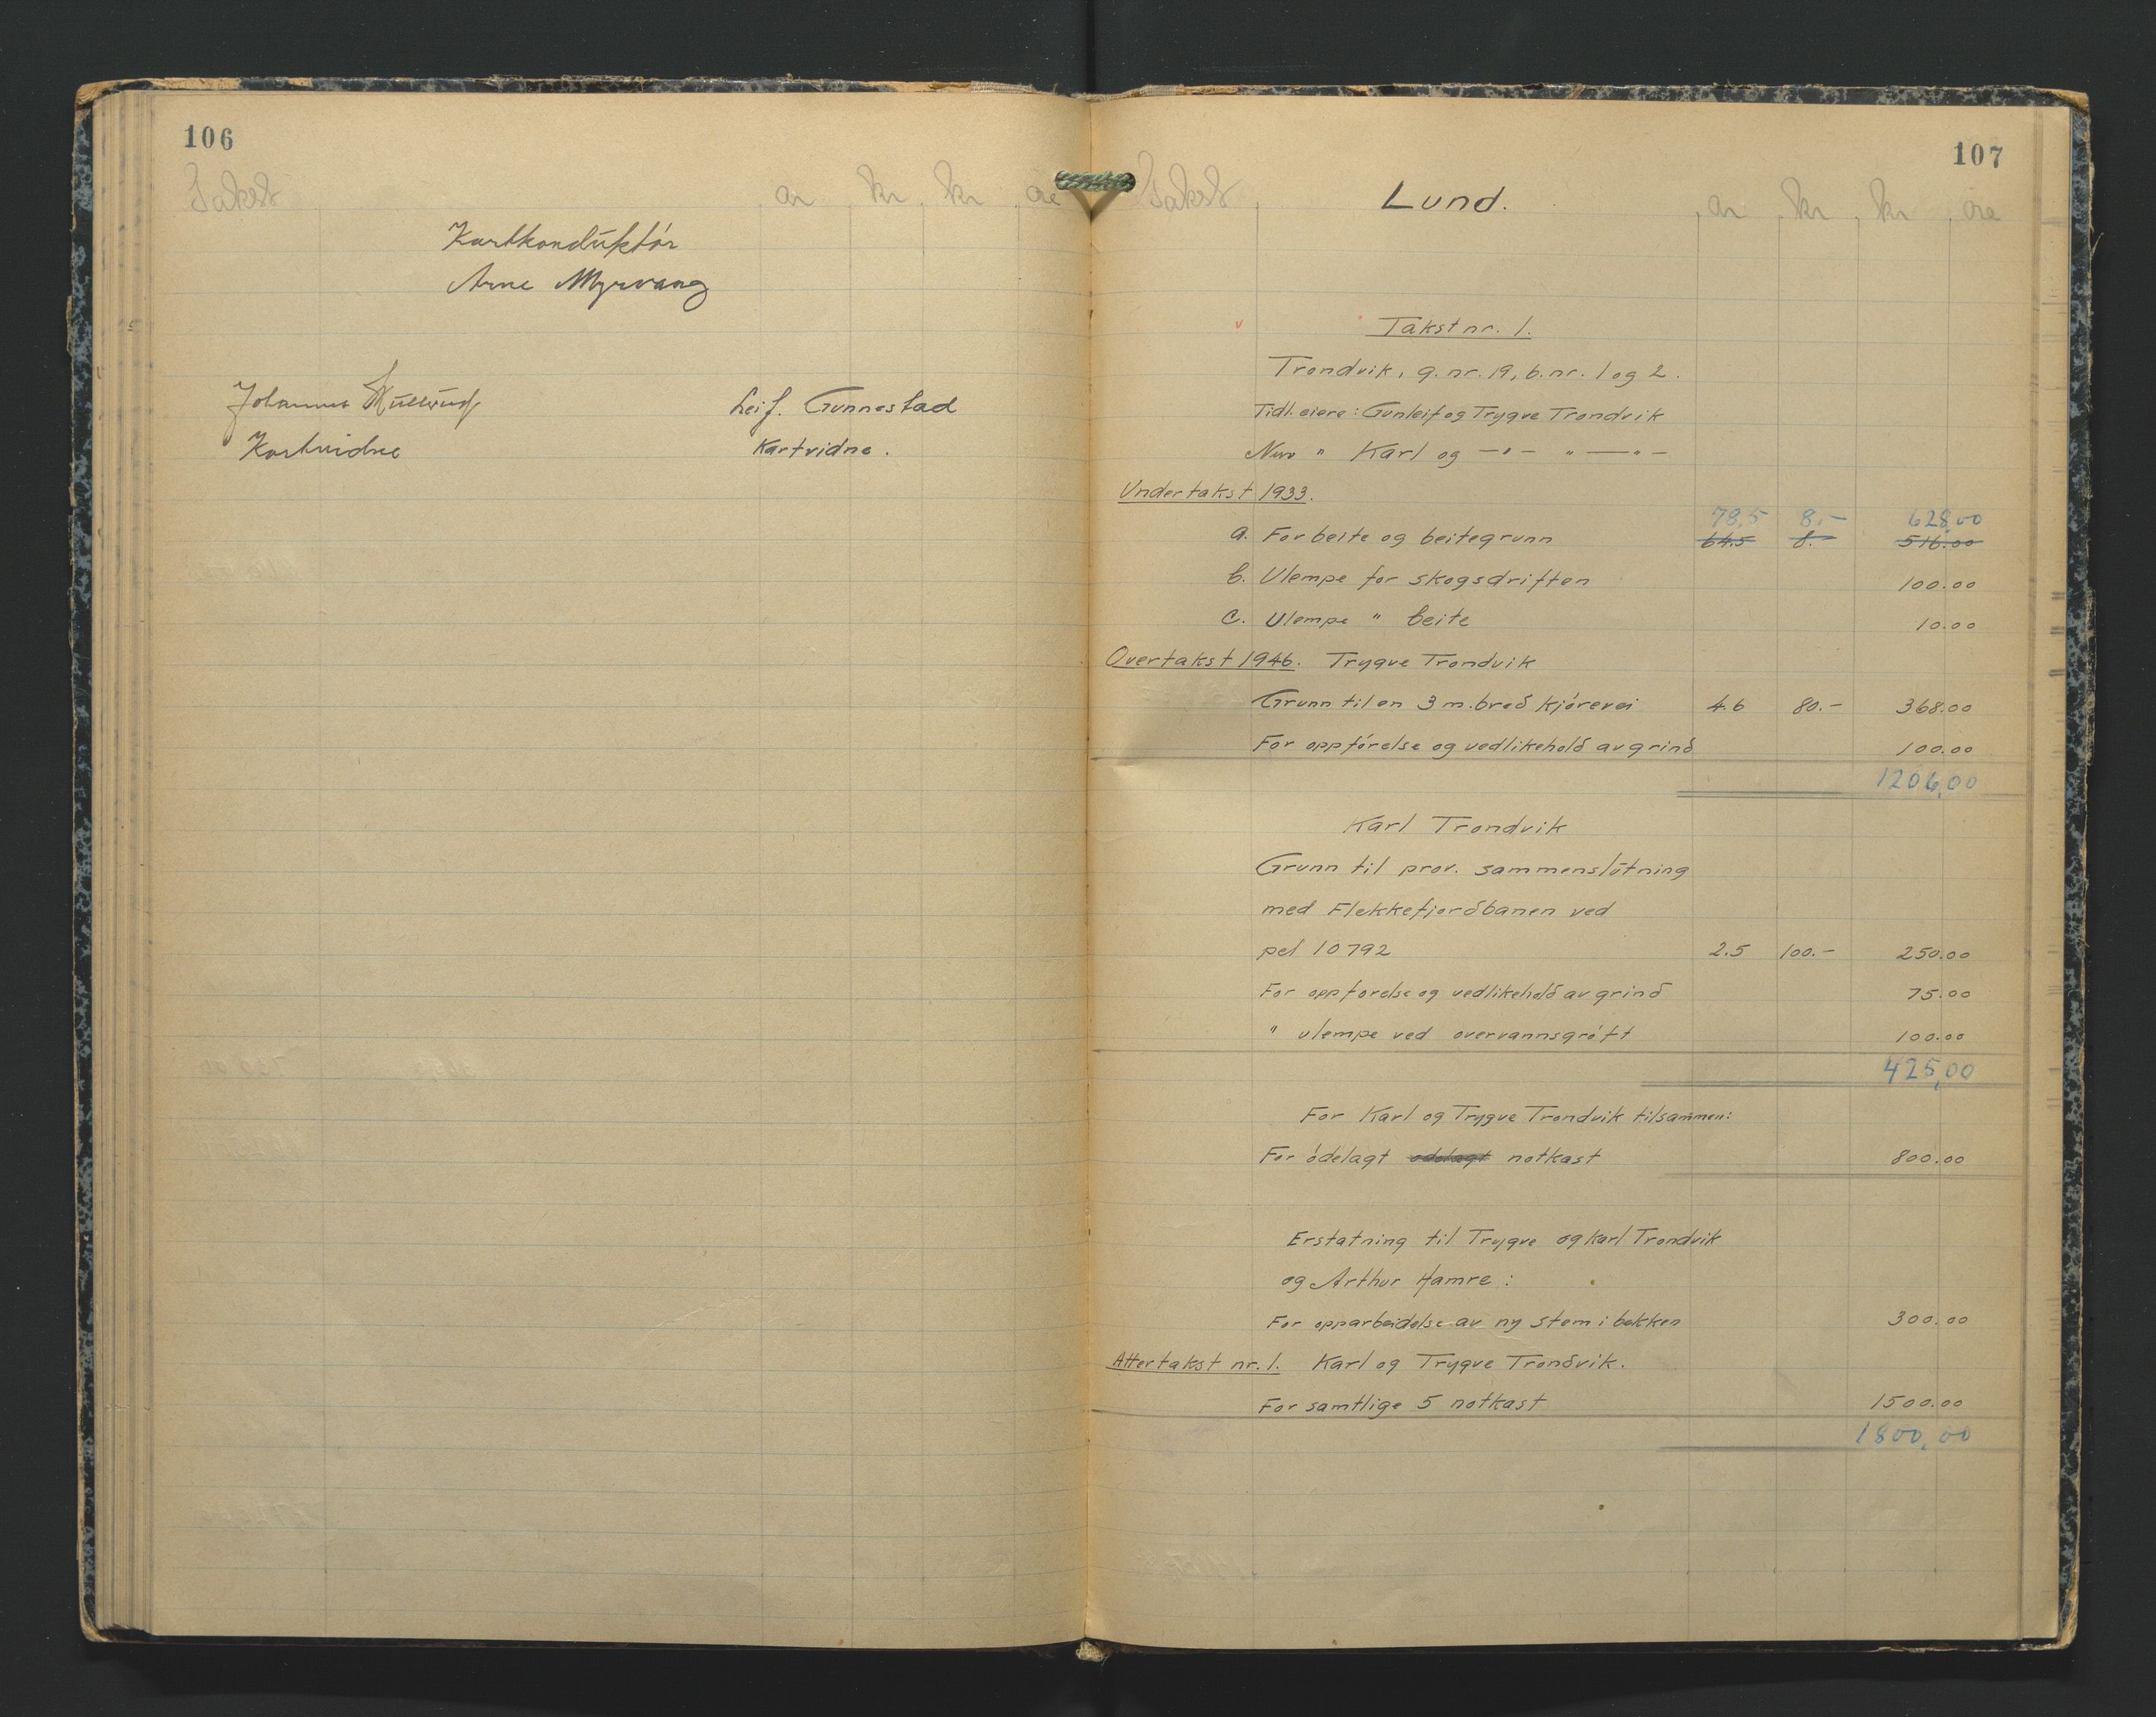 106
Takst ar kr kr øre
Kartkonduktør
Arne Myrvang
Johannes
Leif. Gunnestad
Kartvidne
Kartvidne.
107
Takst Lund. ar kr kr øre
Takst nr. 1.
Trondvik, g.nr. 19, b.nr. 1 og 2.
Tidl. eiere: Gunleif og Trygve Trondvik
Nuv " Karl og —"— " —"—
Undertakst 1933.
78,5 8,- 628,00
a. For beite og beitegrunn 64.5 8.- 516.00
b. Ulempe for skogsdriften 100.00
c. Ulempe " beite 10.00
Overtakst 1946. Trygve Trondvik
Grunn til en 3 m. bred kjørevei 4.6 80.- 368.00
For oppførelse og vedlikehold av grind 100.00
1206,00
Karl Trondvik
Grunn til prov. sammenslutning
med Flekkefjordbanen ved
pel 10792 2.5 100.- 250.00
For oppførelse og vedlikehold av grind 75.00
" ulempe ved overvannsgrøft 100.00
425,00
For Karl og Trygve Trondvik tilsammen:
For ødelagt ødelagt notkast 800.00
Erstatning til Trygve og Karl Trondvik
og Arthur Hamre:
For opparbeidelse av ny stem i bekken 300.00
Attertakst nr. 1. Karl og Trygve Trondvik.
For samtlige 5 notkast 1500.00
1800,00